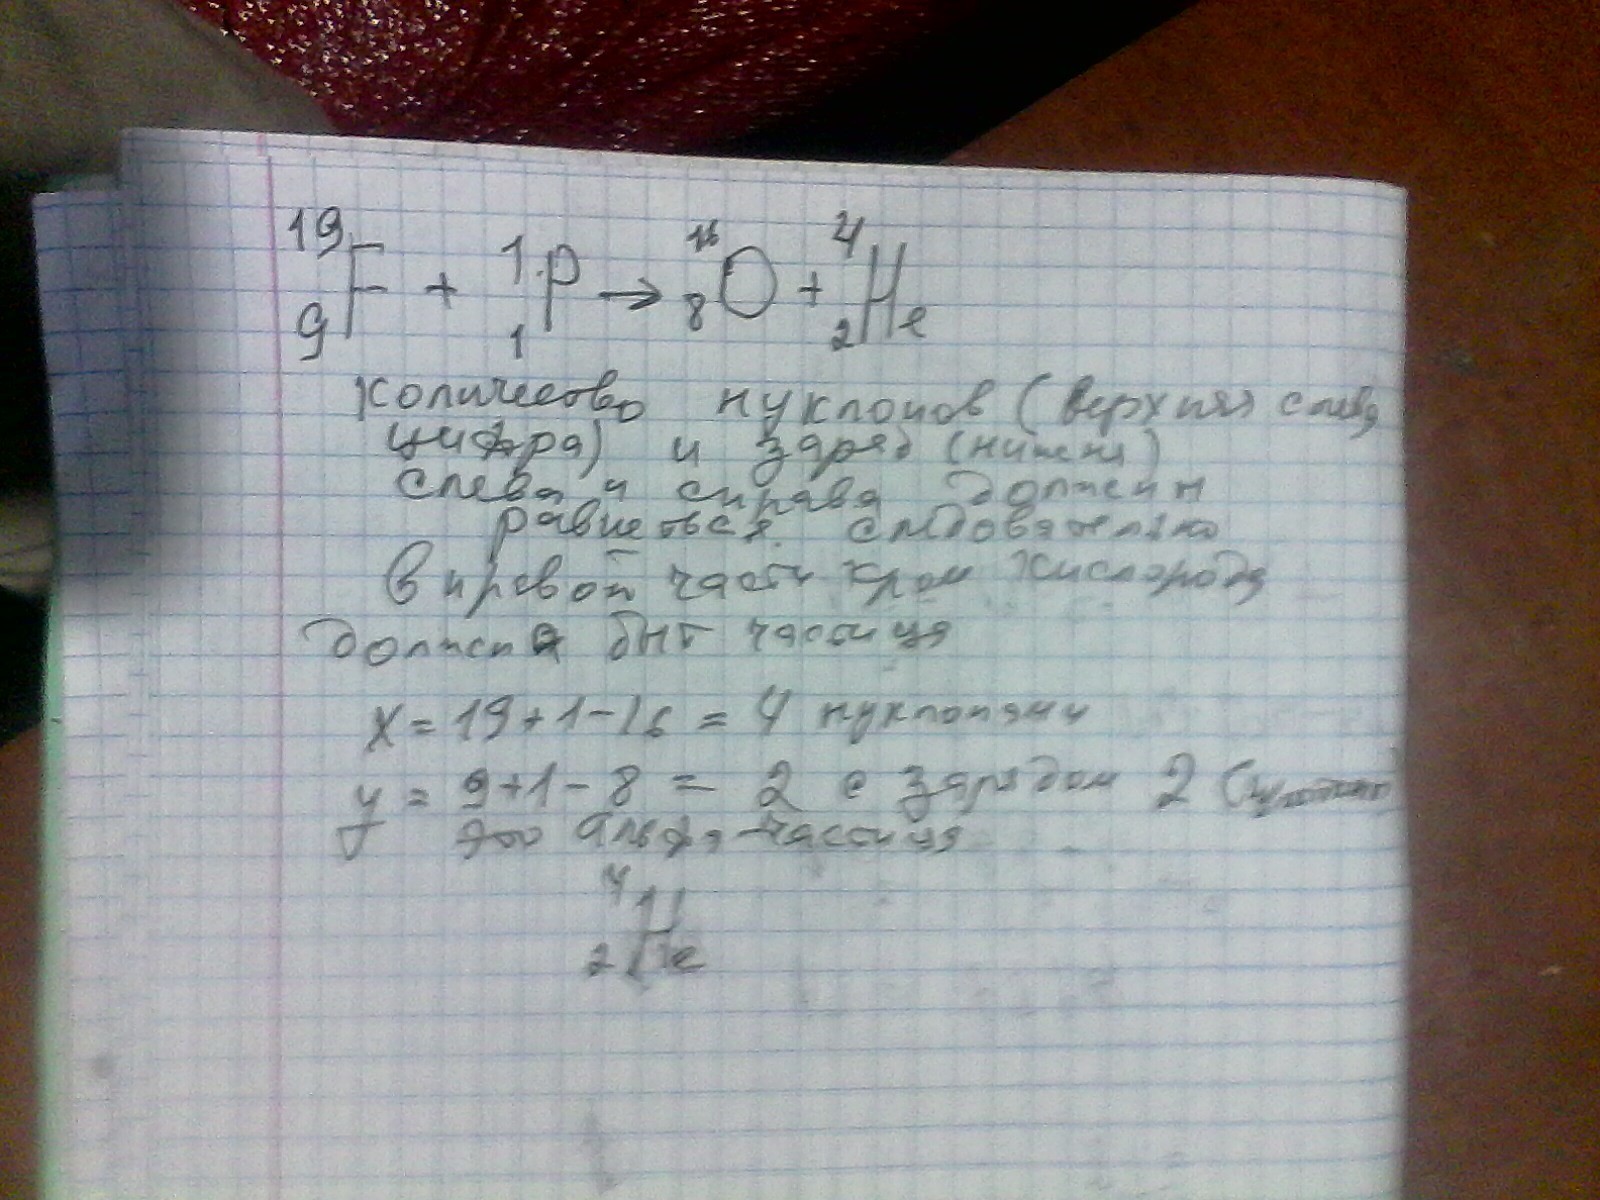 19 9 F + 1 1 p → 16 8 O + 4 2 He
Количество нуклонов (верхняя слева
цифра) и заряд (нижняя)
слева и справа должен
равняться. следовательно
в правой части кром кислорода
должна быт частица
x = 19+1-16 = 4 нуклонами
y = 9+1-8 = 2 с зарядом 2
это альфа-частица
4 2 He